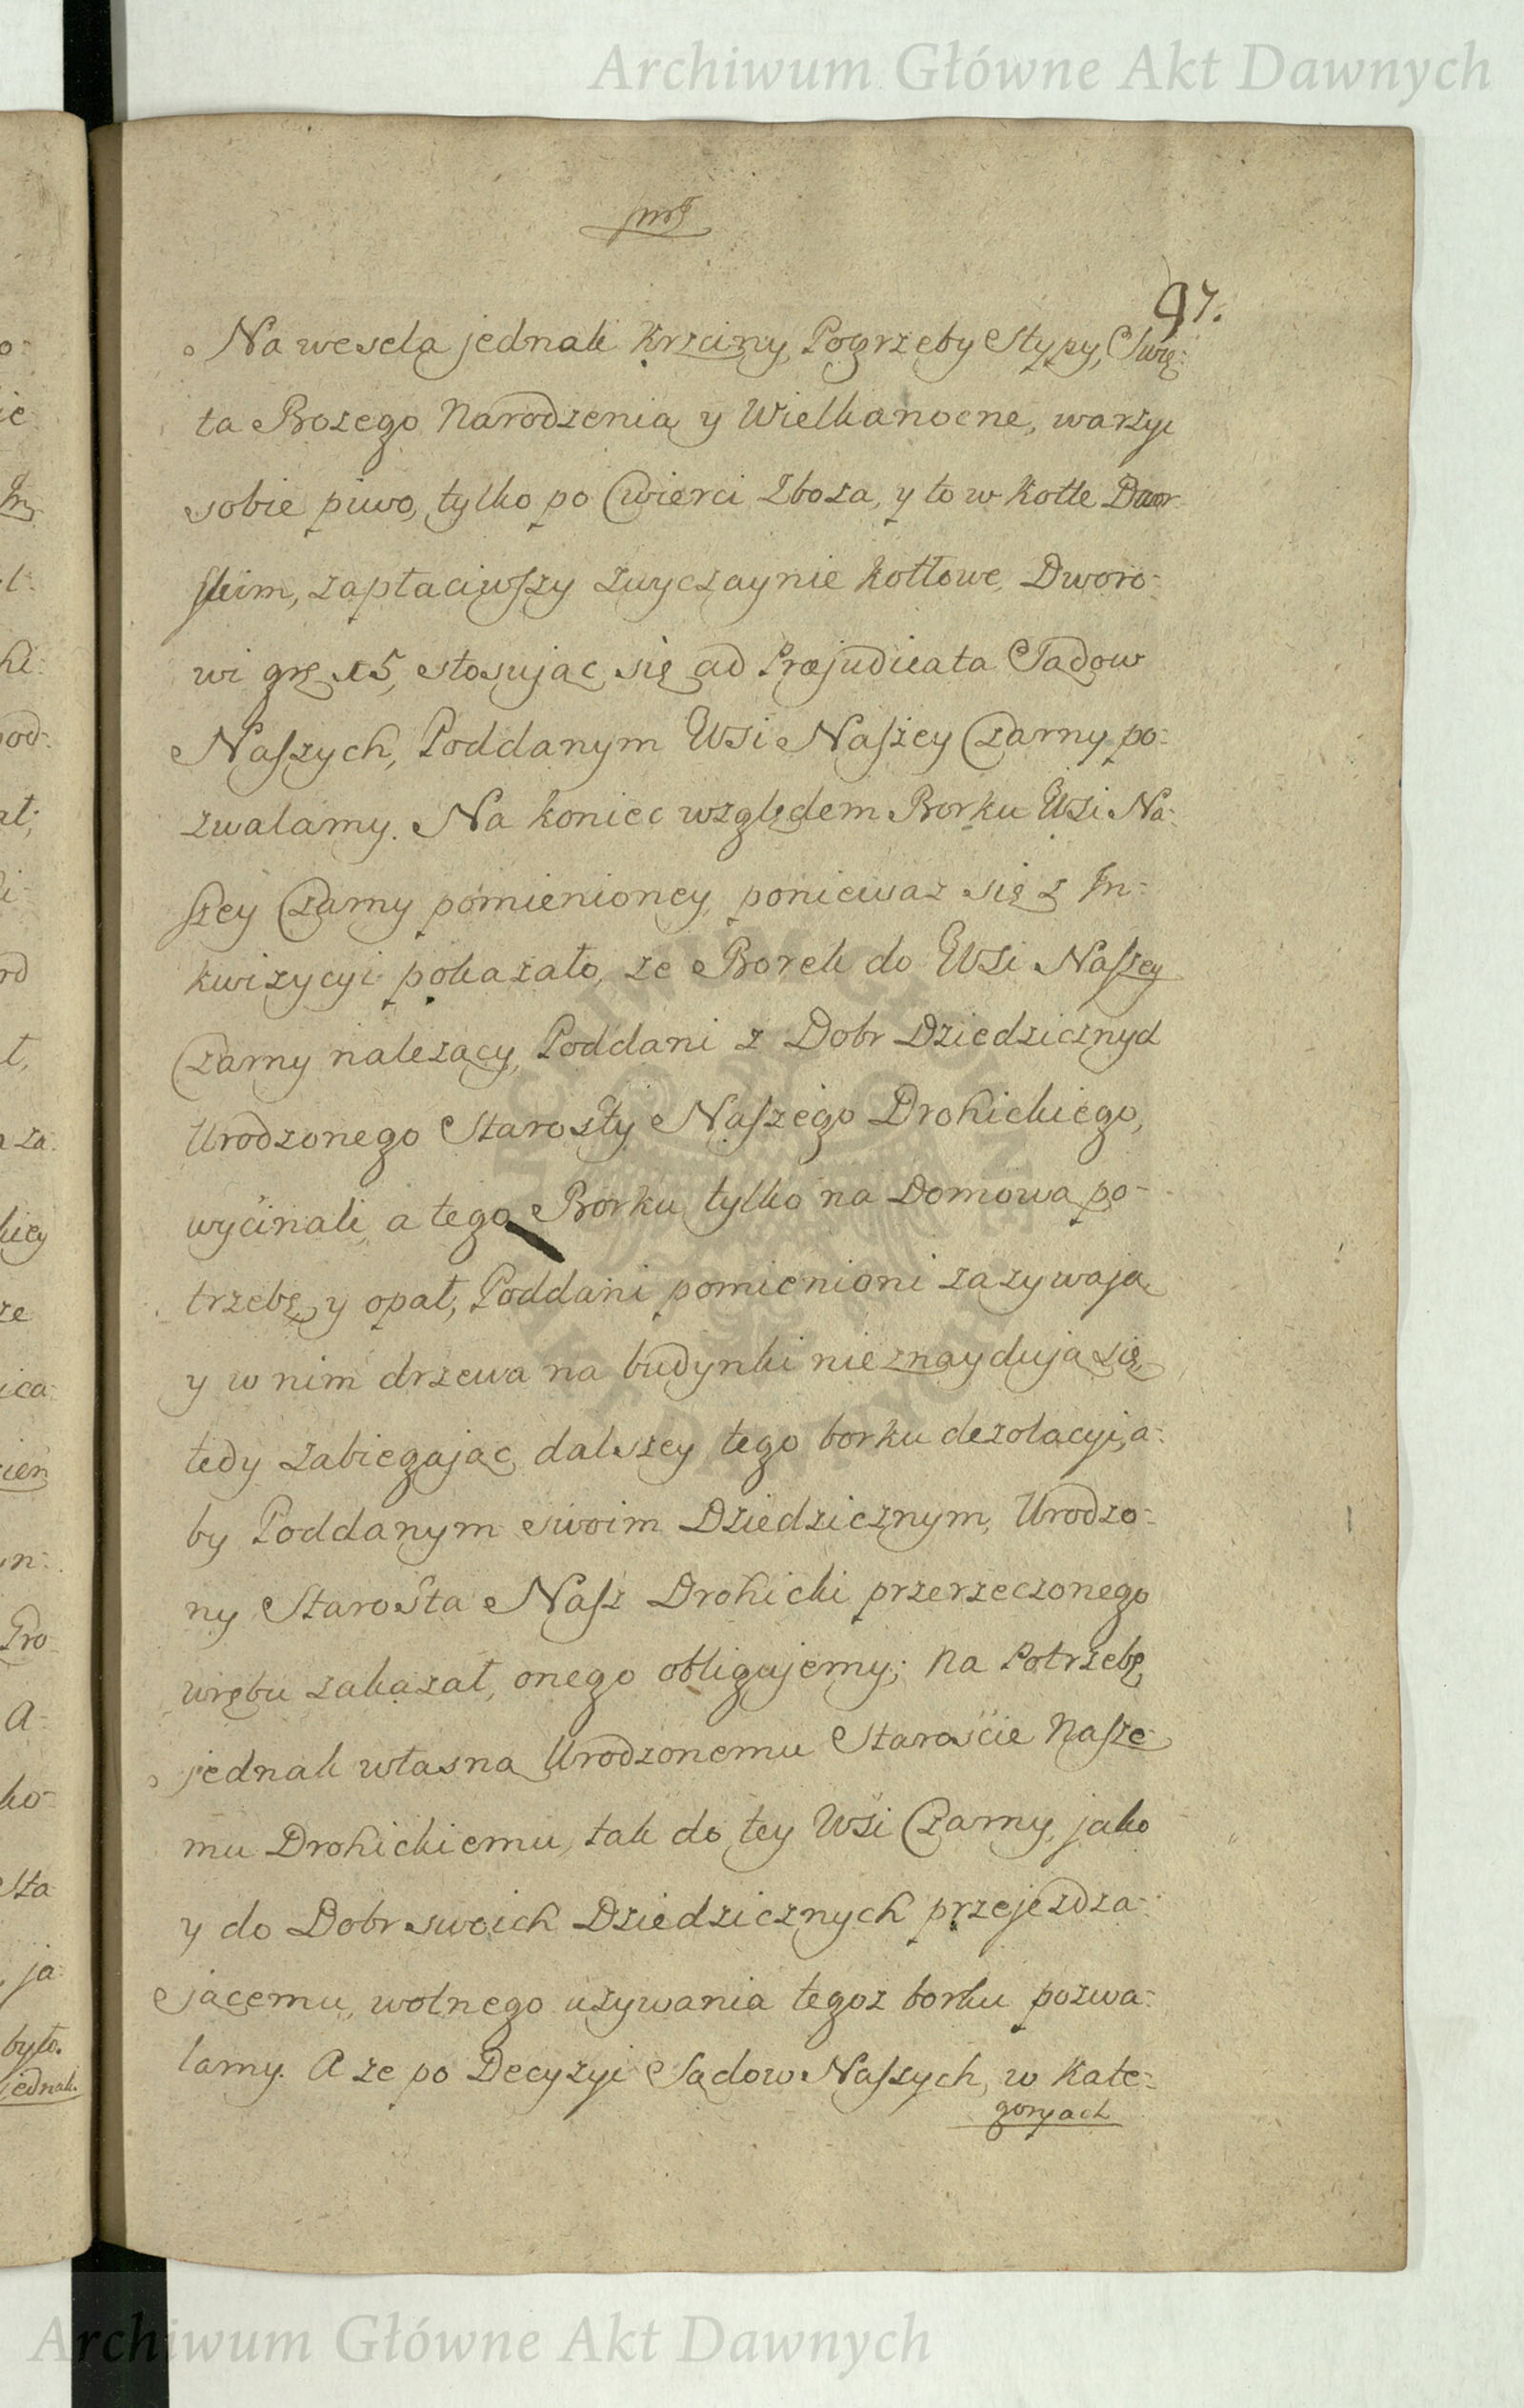 Archiwum Główne Akt Dawnych
97.
Na wesela jednak krzciny, Pogrzeby Stypy, Swię-
ta Bozego Narodzenia y Wielkanocne, warzyc
sobie piwo, tylko po Cwierci Zboza, y to w kotle Dwor-
skim, zapłaciwszy zwyczaynie kotłowe, Dworo-
wi grę 15, stosując się ad Præjudicata Sądow
Naszych, Poddanym Wsi Naszey Czarny po-
zwalamy. Na koniec względem Borku Wsi Na-
szey Czarny pomienioney, poniewaz się z In-
kwizycyi pokazało, ze Borek do Wsi Naszey
Czarny nalezący, Poddani z Dobr Dziedzicznych
Urodzonego Starosty Naszego Drohickiego,
wycinali, a tego Borku tylko na Domową po-
trzebę, y opał, Poddani pomienioni zazywają
y w nim drzewa na budynki nieznaydują się,
tedy zabiegając dalszey tego borku dezolacyi, a-
by Poddanym swoim Dziedzicznym, Urodzo-
ny Starosta Nasz Drohicki przerzeczonego
wrębu zakazał, onego obligujemy; na Potrzebę
jednak własną Urodzonemu Staroście Nasze-
mu Drohickiemu, tak do tey Wsi Czarny, jako
y do Dobr swoich Dziedzicznych przejezdza-
jącemu, wolnego uzywania tegoz borku pozwa-
lamy. A ze po Decyzyi Sądow Naszych, w kate-
goryach
Archiwum Główne Akt Dawnych